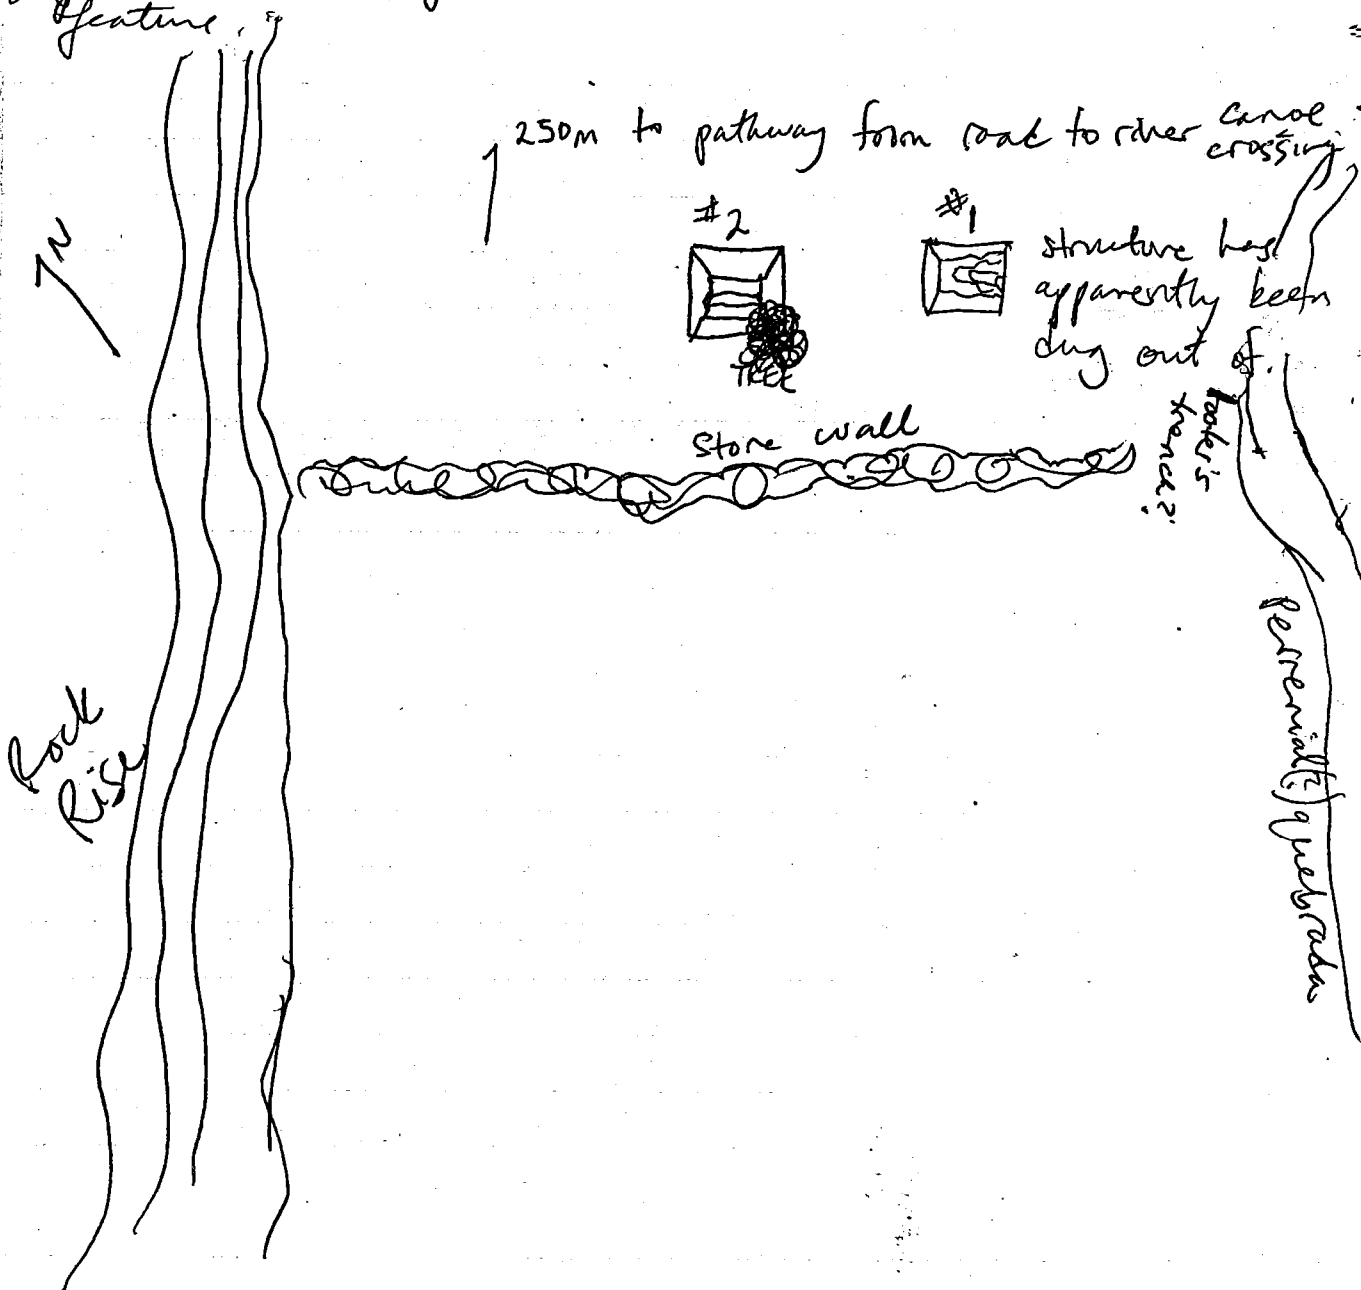 feature.
250m to pathway from road to river canoe crossing
N
#2
#1
structure has
apparently been
dug out of.
TREE
Stone wall
looter's
trench?
Rock
Rise
Perrenial(?) quebrada